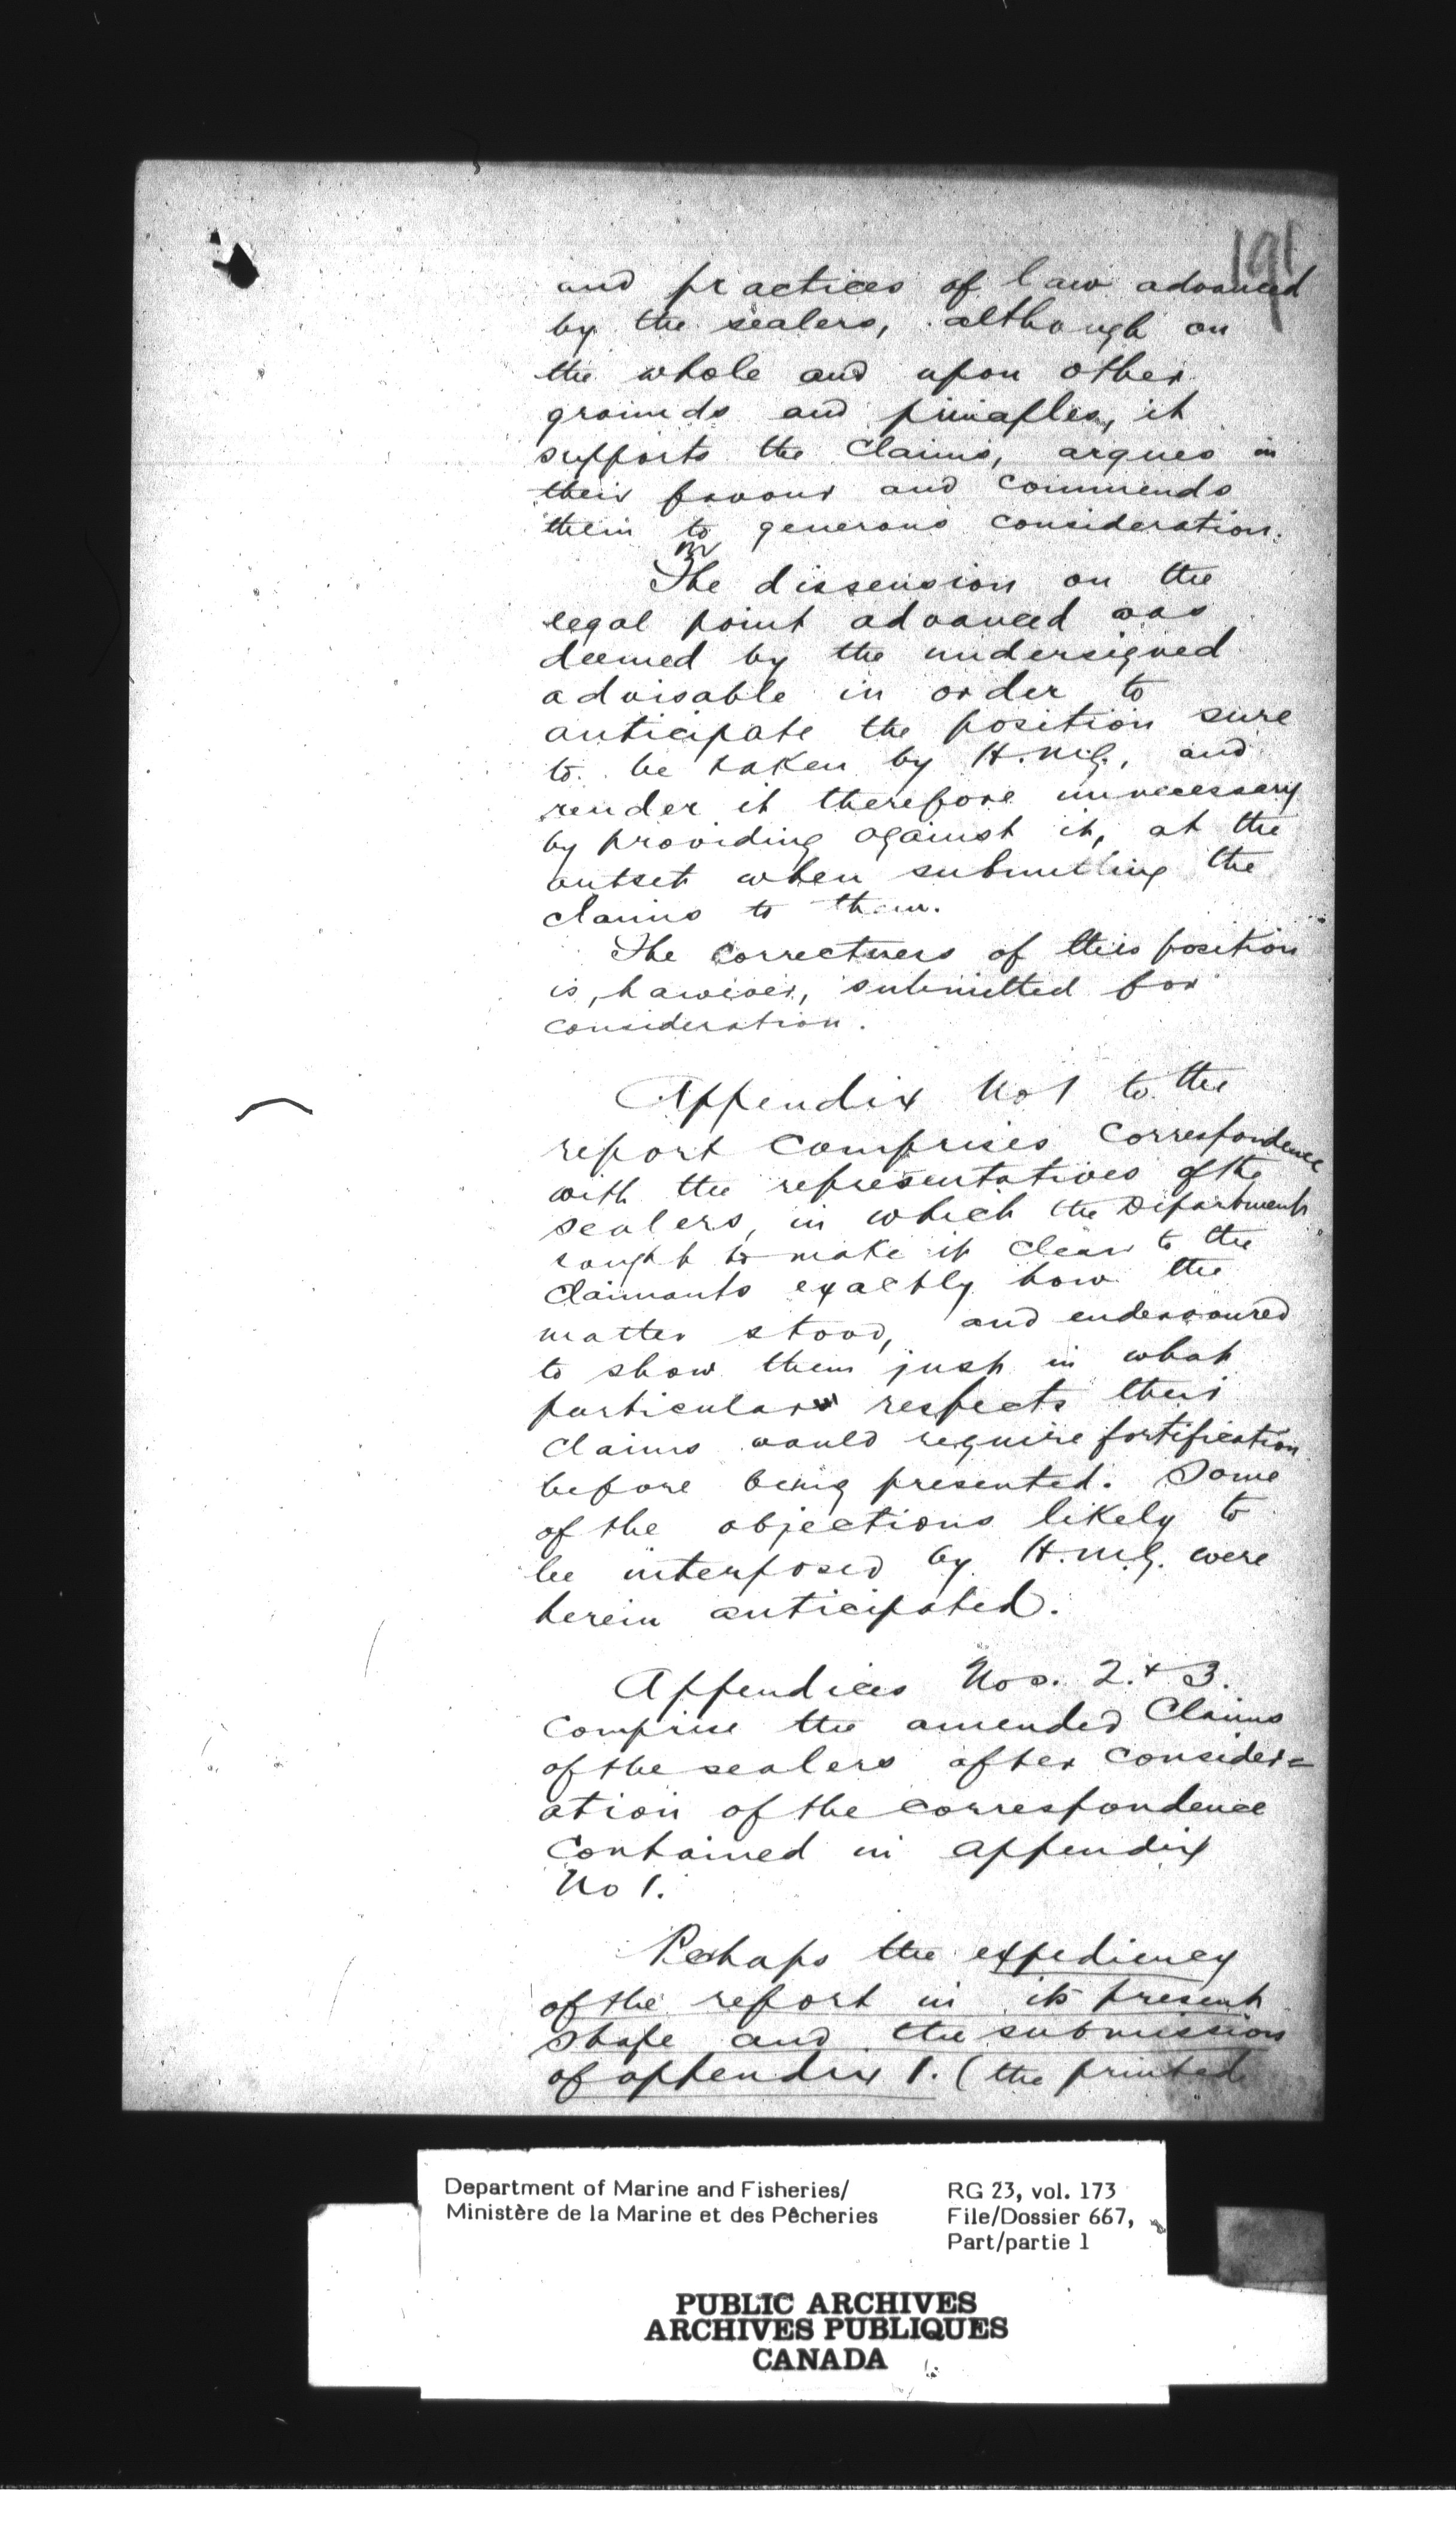 191
and practices of law advanced
by the sealers, although on
the whole and upon other
grounds and principles, it
supports the Claims, argues in
their favour and commends
them to generous consideration.
The dissension on the
legal point advanced was
deemed by the undersigned
advisable in order to
anticipate the position sure
to be taken by H.M.G., and
render it therefore unnecessary
by providing against it, at the
outset when submitting the
claims to them.
The correctness of this position
is, however, submitted for
consideration.
Appendix No 1 to the
report comprises Correspondence
with the representatives of the
sealers, in which the Department
sought to make it clear to the
claimants exactly how the
matter stood, and endeavoured
to show them just in what
particular respects their
claims would require fortification
before being presented. Some
of the objections likely to
be interposed by H.M.G. were
herein anticipated.
Appendices Nos. 2. & 3.
comprise the amended Claims
of the sealers after consider=
ation of the correspondence
contained in appendix
No 1.
Perhaps the expediency
of the report in its present
shape and the submission
of appendix 1. (the printed
Department of Marine and Fisheries/
Ministère de la Marine et des Pêcheries
RG 23, vol. 173
File/Dossier 667,
Part/partie 1
PUBLIC ARCHIVES
ARCHIVES PUBLIQUES
CANADA